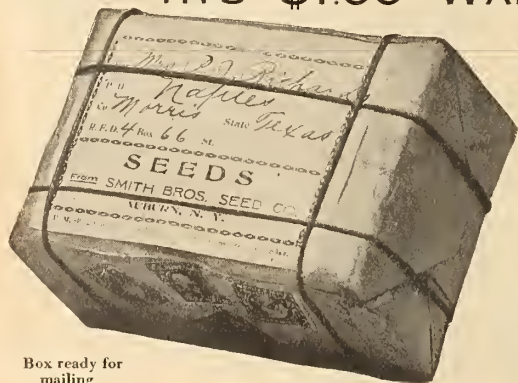 $1.00
Mrs. P. J. Richards
P. O. Naples
Co Morris State Texas
R. F. D. 4 Box 66 St.
SEEDS
From SMITH BROS. SEED CO.
AUBURN, N. Y.
Box ready for
mailing